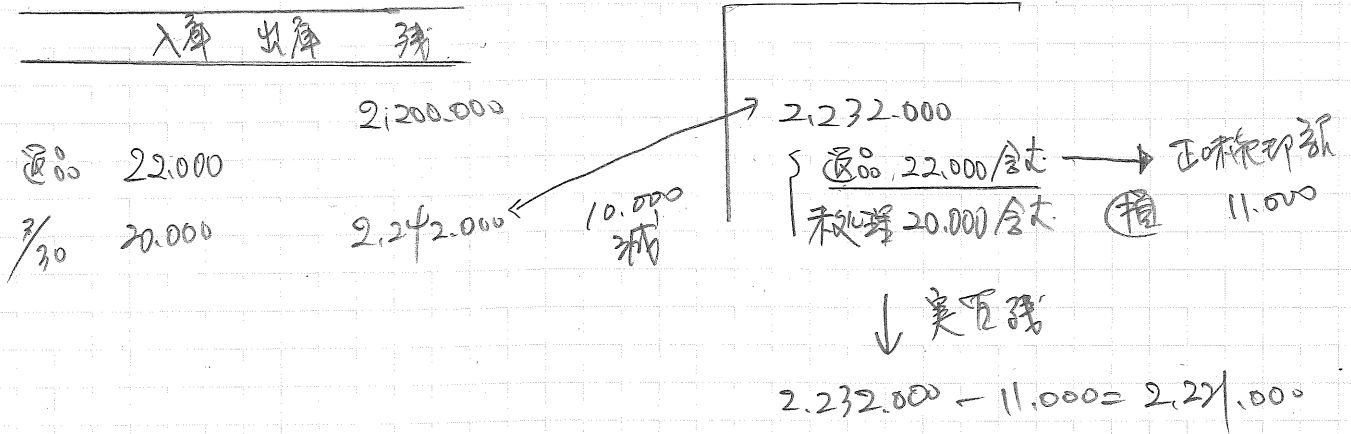 入庫 出庫 残
2,200.000
返品 22.000
3/30 20.000 2.242.000
10.000
減
2.232.000
返品 22.000含む → 正味売却額
未処理 20.000含む 損 11.000
↓ 実質残
2.232.000 - 11.000= 2.221.000